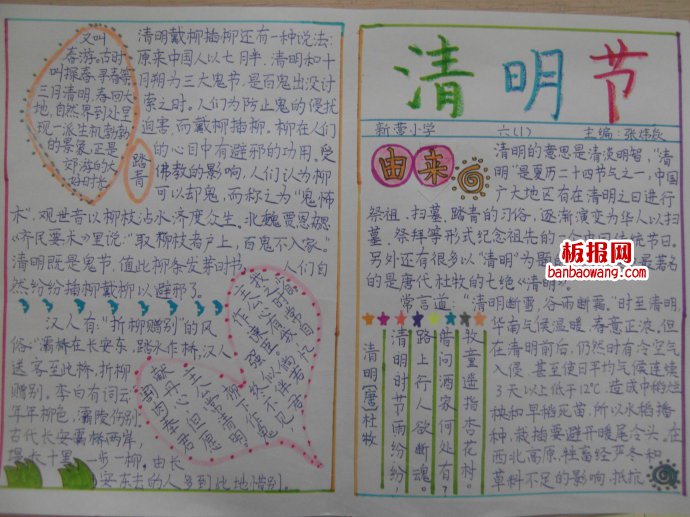 又叫
春游。古时
叫探春、寻春等。
三月清明，春回大
地，自然界到处呈
现一派生机勃勃
的景象，正是
郊游的大
好时光。
踏青
清明戴柳插柳还有一种说法：
原来中国人以七月半、清明和十
月朔为三大鬼节，是百鬼出没讨
索之时。人们为防止鬼的侵扰
迫害，而戴柳插柳。柳在人们
的心目中有避邪的功用。受
佛教的影响，人们认为柳
可以却鬼，而称之为“鬼怖
木”，观世音以柳枝沾水济度众生。北魏贾思勰
《齐民要术》里说：“取柳枝著户上，百鬼不入家。”
清明既是鬼节，值此柳条发芽时节，人们自
然纷纷插柳戴柳以避邪了。
汉人有“折柳赠别”的风
俗：“灞桥在长安东，跨水作桥，汉人
送客至此桥，折柳
赠别。李白有词云：
年年柳色，灞陵伤别。
古代长安灞桥两岸，
堤长十里，一步一柳，由长
安东去的人多到此地惜别，
清明节
新萤小学
六（1）
主编：张炜
由来
清明的意思是清淡明智，“清
明”是夏历二十四节气之一，中国
广大地区有在清明之日进行
祭祖、扫墓、踏青的习俗，逐渐演变为华人以扫
墓、祭拜等形式纪念祖先的一个中国传统节日。
另外还有很多以“清明”为题
最著名
的是唐代杜牧的七绝《清明》。
板报网
banbaowang.com
常言道：“清明断雪，谷雨断霜。”时至清明，
华南气候温暖，春意正浓。但
在清明前后，仍然时有冷空气
入侵，甚至使日平均气候连续
3天以上低于12℃，造成中稻烂
秧和早稻死苗，所以水稻播
种、栽插要避开暖尾冷头。在
西北高原，牲畜经严冬和
草料不足的影响，抵抗
清明〔唐〕杜牧
清明时节雨纷纷，
路上行人欲断魂。
借问酒家何处有，
牧童遥指杏花村。